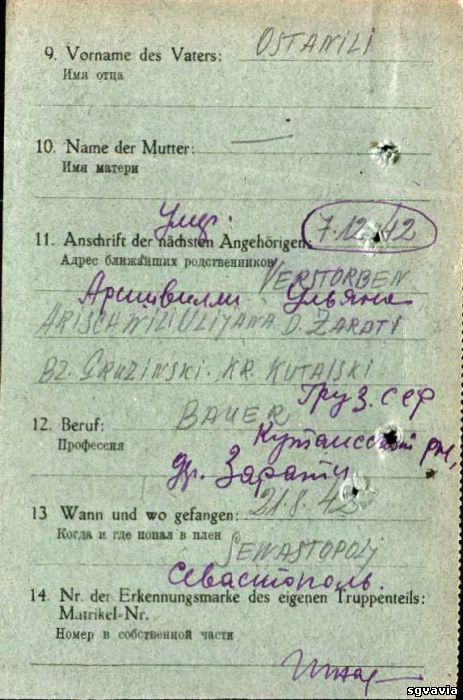 9. Vorname des Vaters: OSTANILI
Имя отца
10. Name der Mutter: —
Имя матери
Умер. 7.12.42
11. Anschrift der nächsten Angehörigen:
Адрес ближайших родственников VERSTORBEN
Аришвилли Ульяна
ARISCHWILI ULIJANA D. ZARATI
BZ. GRUZINSKI. KR. KUTAISKI
Груз. ССР
12. Beruf: BAUER
Профессия Кутаисский рн,
др. Зарати
13 Wann und wo gefangen: 21.8.42
Когда и где попал в плен SEWASTOPOLJ
Севастополь.
14. Nr. der Erkennungsmarke des eigenen Truppenteils:
Matrikel-Nr.
Номер в собственной части
sgvavia